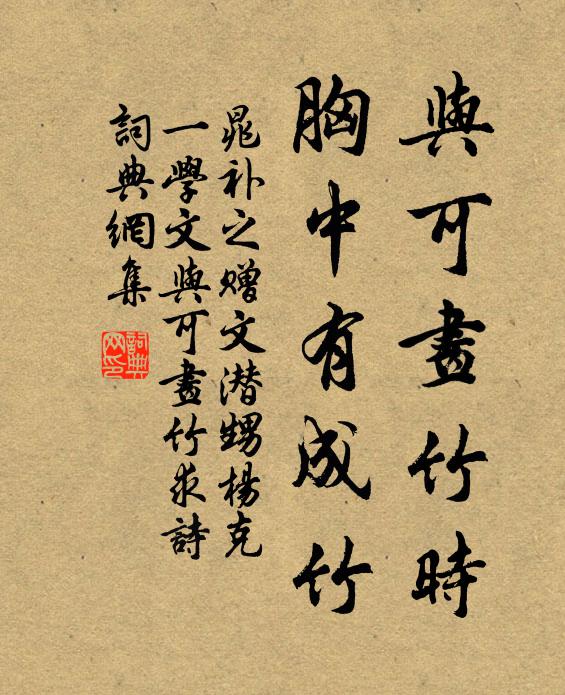 與可畫竹時
胸中有成竹
晁补之赠文潜甥楊克
一學文與可畫竹求詩
詞典網集
詞典网印